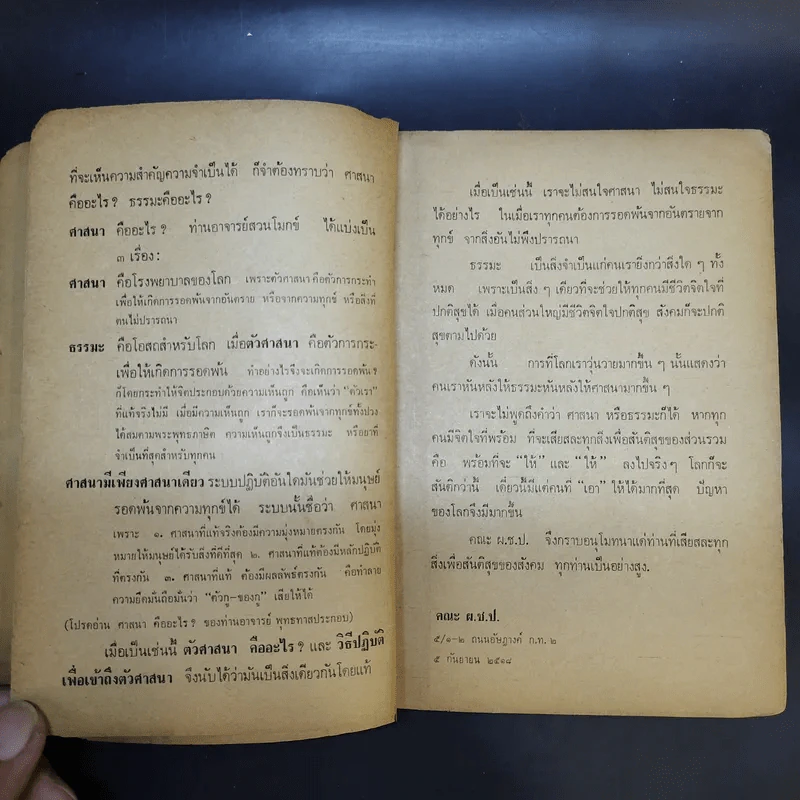 ที่จะเห็นความสำคัญความจำเป็นได้ ก็จำต้องทราบว่า ศาสนา
คืออะไร? ธรรมะคืออะไร?
ศาสนา คืออะไร? ท่านอาจารย์สวนโมกข์ ได้แบ่งเป็น
๓ เรื่อง:
ศาสนา คือโรงพยาบาลของโลก เพราะตัวศาสนา คือตัวการกระทำ
เพื่อให้เกิดการรอดพ้นจากอันตราย หรือจากความทุกข์ หรือสิ่งที่
คนไม่ปรารถนา
ธรรมะ คือโอสถสำหรับโลก เมื่อตัวศาสนา คือตัวการกระ-
เพื่อให้เกิดการรอดพ้น ทำอย่างไรจึงจะเกิดการรอดพ้นฯ
ก็โดยกระทำให้จิตประกอบด้วยความเห็นถูก คือเห็นว่า "ตัวเรา"
ที่แท้จริงไม่มี เมื่อมีความเห็นถูก เราก็จะรอดพ้นจากทุกข์ทั้งปวง
ได้สมตามพระพุทธภาษิต ความเห็นถูกจึงเป็นธรรมะ หรือยาที่
จำเป็นที่สุดสำหรับทุกคน
ศาสนามีเพียงศาสนาเดียว ระบบปฏิบัติอันใดมันช่วยให้มนุษย์
รอดพ้นจากความทุกข์ได้ ระบบนั้นชื่อว่า ศาสนา
เพราะ ๑. ศาสนาที่แท้จริงต้องมีความมุ่งหมายตรงกัน โดยมุ่ง
หมายให้มนุษย์ได้รับสิ่งที่ดีที่สุด ๒. ศาสนาที่แท้ต้องมีหลักปฏิบัติ
ที่ตรงกัน ๓. ศาสนาที่แท้ ต้องมีผลลัพธ์ตรงกัน คือทำลาย
ความยึดมั่นถือมั่นว่า "ตัวกู-ของกู" เสียให้ได้
(โปรดอ่าน ศาสนา คืออะไร? ของท่านอาจารย์ พุทธทาสประกอบ)
เมื่อเป็นเช่นนี้ ตัวศาสนา คืออะไร? และ วิธีปฏิบัติ
เพื่อเข้าถึงตัวศาสนา จึงนับได้ว่ามันเป็นสิ่งเดียวกันโดยแท้
เมื่อเป็นเช่นนี้ เราจะไม่สนใจศาสนา ไม่สนใจธรรมะ
ได้อย่างไร ในเมื่อเราทุกคนต้องการรอดพ้นจากอันตรายจาก
ทุกข์ จากสิ่งอันไม่พึงปรารถนา
ธรรมะ เป็นสิ่งจำเป็นแก่คนเรายิ่งกว่าสิ่งใด ๆ ทั้ง
หมด เพราะเป็นสิ่ง ๆ เดียวที่จะช่วยให้ทุกคนมีชีวิตจิตใจที่
ปกติสุขได้ เมื่อคนส่วนใหญ่มีชีวิตจิตใจปกติสุข สังคมก็จะปกติ
สุขตามไปด้วย
ดังนั้น การที่โลกเราวุ่นวายมากขึ้น ๆ นั้นแสดงว่า
คนเราหันหลังให้ธรรมะหันหลังให้ศาสนามากขึ้น ๆ
เราจะไม่พูดถึงคำว่า ศาสนา หรือธรรมะก็ได้ หากทุก
คนมีจิตใจที่พร้อม ที่จะเสียสละทุกสิ่งเพื่อสันติสุขของส่วนรวม
คือ พร้อมที่จะ "ให้" และ "ให้" ลงไปจริง ๆ โลกก็จะ
สันติกว่านี้ เดี๋ยวนี้มีแต่คนที่ "เอา" ให้ได้มากที่สุด ปัญหา
ของโลกจึงมีมากขึ้น
คณะ ผ.ช.ป. จึงกราบอนุโมทนาแด่ท่านที่เสียสละทุก
สิ่งเพื่อสันติสุขของสังคม ทุกท่านเป็นอย่างสูง.
คณะ ผ.ช.ป.
๕/๑-๒ ถนนอัษฎางค์ ก.ท. ๒
๕ กันยายน ๒๕๑๘